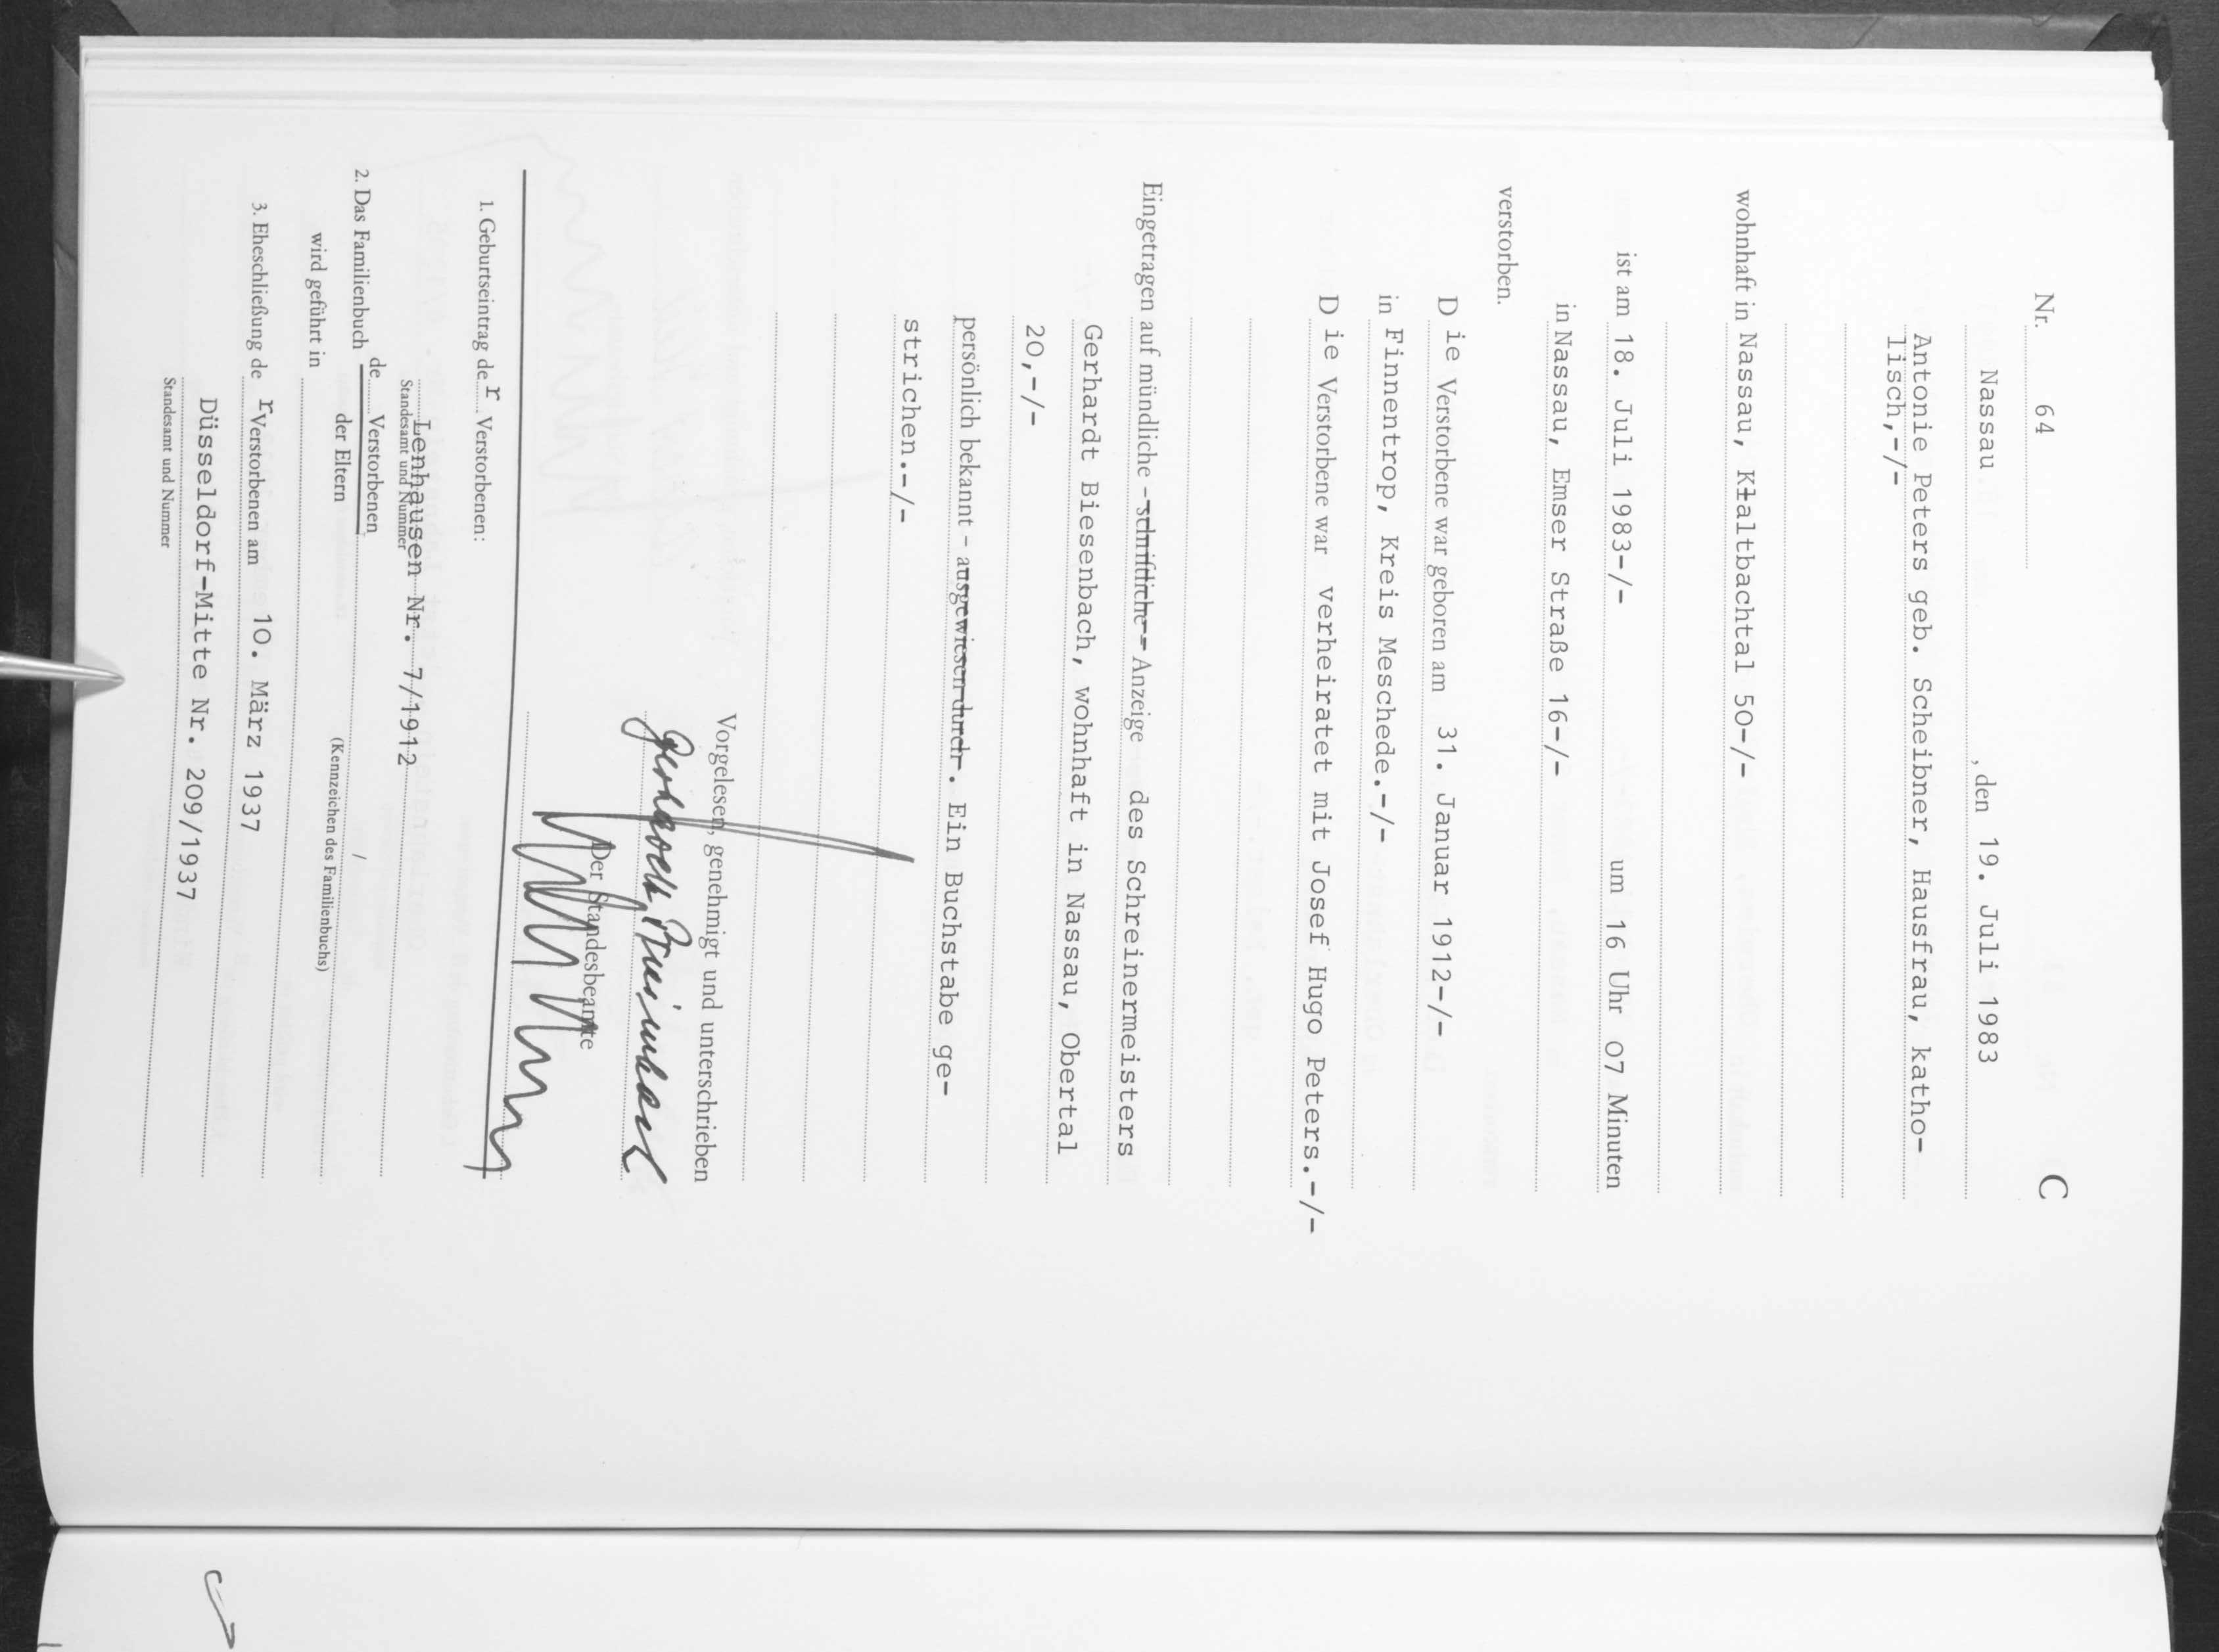 C
Nr. 64
Nassau, den 19. Juli 1983
Antonie Peters geb. Scheibner, Hausfrau, katho-
lisch,-/-
wohnhaft in Nassau, Klaltbachtal 50-/-
ist am 18. Juli 1983-/- um 16 Uhr 07 Minuten
in Nassau, Emser Straße 16-/-
verstorben.
Die Verstorbene war geboren am 31. Januar 1912-/-
in Finnentrop, Kreis Meschede.-/-
Die Verstorbene war verheiratet mit Josef Hugo Peters.-/-
Eingetragen auf mündliche - schriftliche - Anzeige des Schreinermeisters
Gerhardt Biesenbach, wohnhaft in Nassau, Obertal
20,-/-
persönlich bekannt - ausgewiesen durch. Ein Buchstabe ge-
strichen.-/-
Vorgelesen, genehmigt und unterschrieben
Der Standesbeamte
1. Geburtseintrag der Verstorbenen:
Lenhausen Nr. 7/1912
Standesamt und Nummer
2. Das Familienbuch de Verstorbenen
der Eltern
/
(Kennzeichen des Familienbuchs)
wird geführt in
3. Eheschließung der Verstorbenen am 10. März 1937
Düsseldorf-Mitte Nr. 209/1937
Standesamt und Nummer